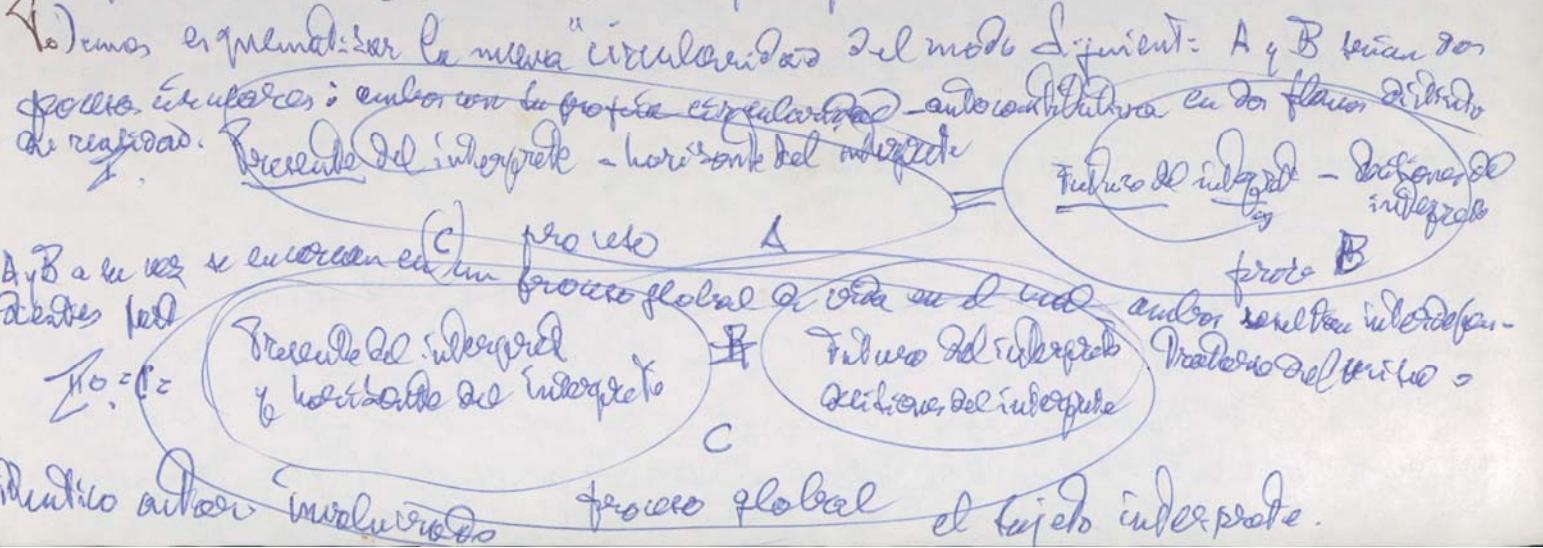 Podemos esquematizar la nueva "circularidad del modo siguiente: A y B serían dos
procesos circulares: ambos con su propia circularidad - autoconstitutiva en dos planos distintos
de realidad.
I. Presente del interprete - horizonte del interprete = Futuro del interprete - decisiones del interprete
proceso A
proceso B
A y B a su vez se enmarcan en (C) un proceso global de vida en el cual ambos resultan interdepen-
dientes
IIo = C = Presente del interprete y horizonte del interprete
Futuro del interprete decisiones del interprete
C
involucrado proceso global el sujeto interprete.